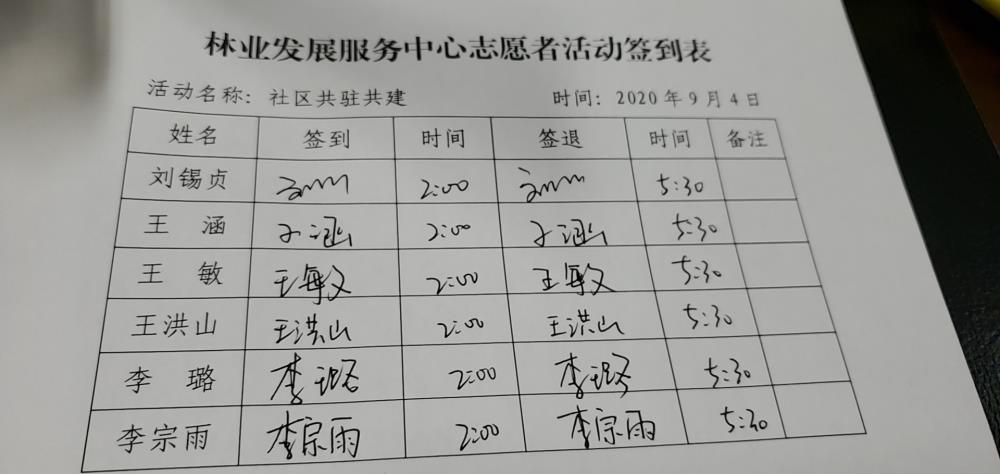 林业发展服务中心志愿者活动签到表
活动名称: 社区共驻共建 时间: 2020年9月4日
姓名 签到 时间 签退 时间 备注
刘锡贞 2:00 5:30
王涵 王涵 2:00 王涵 5:30
王敏 王敏 2:00 王敏 5:30
王洪山 王洪山 2:00 王洪山 5:30
李璐 李璐 2:00 李璐 5:30
李宗雨 李宗雨 2:00 李宗雨 5:30